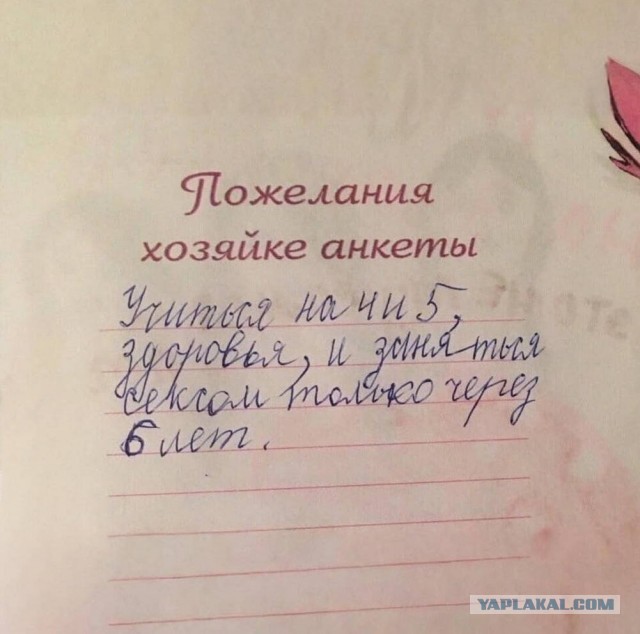 Пожелания
хозяйке анкеты
Учиться на 4 и 5,
здоровья, и заняться
сексом только через
6 лет.
YAPLAKAL.COM